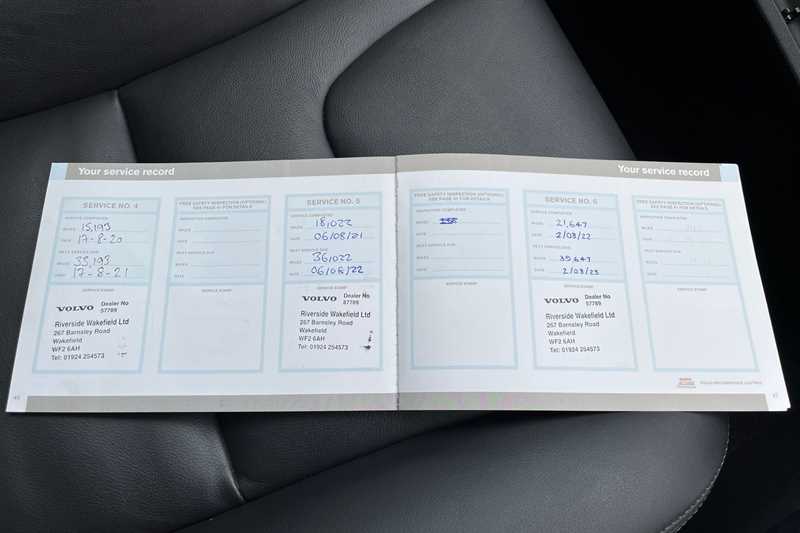 Your service record
SERVICE NO. 4
SERVICE COMPLETED
MILES 15,193
DATE 17-8-20
NEXT SERVICE DUE
MILES 33,193
DATE 17-8-21
SERVICE STAMP
VOLVO Dealer No
57789
Riverside Wakefield Ltd
267 Barnsley Road
Wakefield
WF2 6AH
Tel: 01924 254573
FREE SAFETY INSPECTION (OPTIONAL)
SEE PAGE 41 FOR DETAILS
INSPECTION COMPLETED
MILES
DATE
NEXT SERVICE DUE
MILES
DATE
SERVICE STAMP
SERVICE NO. 5
SERVICE COMPLETED
MILES 18,022
DATE 06/08/21
NEXT SERVICE DUE
MILES 36,022
DATE 06/08/22
SERVICE STAMP
VOLVO Dealer No
57789
Riverside Wakefield Ltd
267 Barnsley Road
Wakefield
WF2 6AH
Tel: 01924 254573
Your service record
FREE SAFETY INSPECTION (OPTIONAL)
SEE PAGE 41 FOR DETAILS
INSPECTION COMPLETED
MILES
DATE
NEXT SERVICE DUE
MILES
DATE
SERVICE STAMP
SERVICE NO. 6
SERVICE COMPLETED
MILES 21,647
DATE 2/03/22
NEXT SERVICE DUE
MILES 39,647
DATE 2/03/23
SERVICE STAMP
VOLVO Dealer No
57789
Riverside Wakefield Ltd
267 Barnsley Road
Wakefield
WF2 6AH
Tel: 01924 254573
FREE SAFETY INSPECTION (OPTIONAL)
SEE PAGE 41 FOR DETAILS
INSPECTION COMPLETED
MILES
DATE
NEXT SERVICE DUE
MILES
DATE
SERVICE STAMP